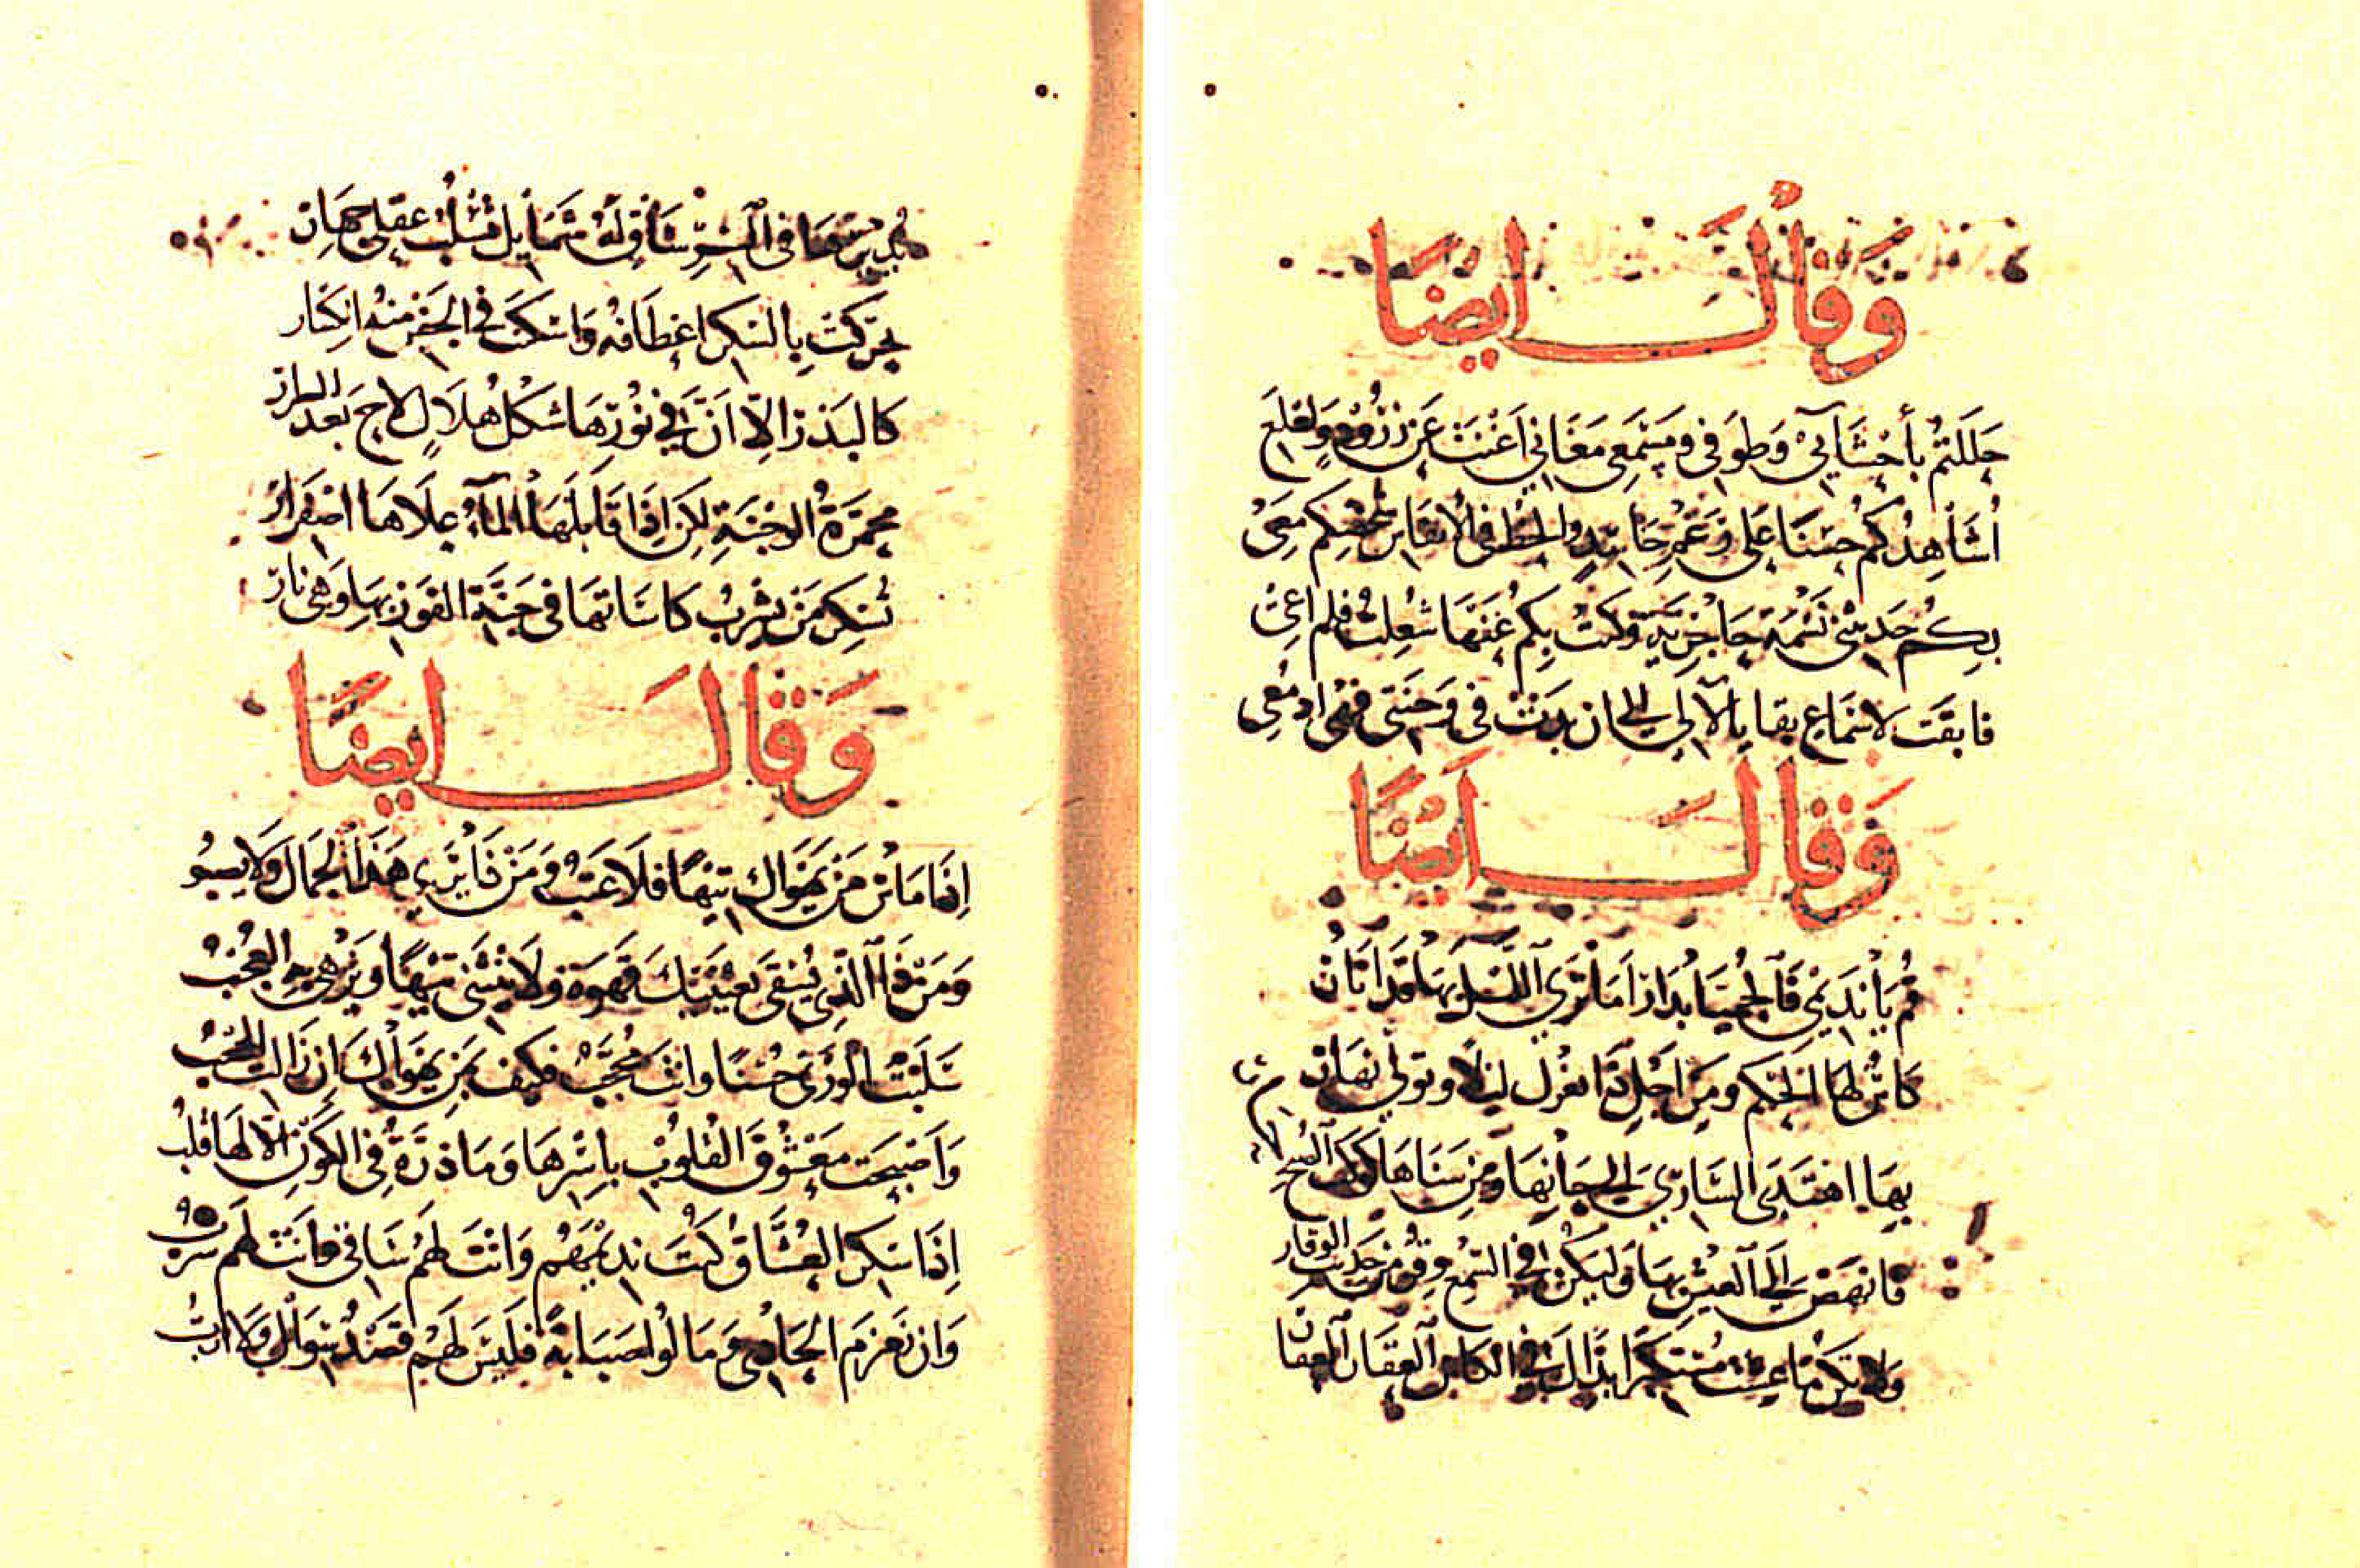 وَقَالَ ايضًا
حَلَلتُمْ بأحْشَآيئ وَطَوفى ومَسْمَعِي مَغَانٍي اَغْنَتْ عَن زرُودٍ وَلَعْلَعِ
اُشَاهِدُكُم حسْنًا عَلى زَعْمِ حَاسِدٍ والحظُ فى الأنفَاس شخصكم مَعِىْ
بكُم حَدثتنى نَسْمَة حَاجريَّة وكنتُ بِكم عَنهَا شُغِلتُ فلم اعِىْ
فابقَت لاسْمَاعى بقايا لآلى الى ان بدَتْ فى وَجْنَتى فهى ادمُعِى
وَقَالَ ايضًا
قُم يَا نَدِيْمي فَالحُميَّا بُدَارْ اَمَا تَرَي اللَّيْلَ بهَا قَد اَنَارْ
كَانَ لهَا الحكم ومِن اَجْلِ ذَا يعْزل ليْلًا وتولى نهَارْ
بهَا اهْتَدَى السَّارِي الى حَانِهَا ومِن سَنَاهَا كوكب الصُّبح
فانهَضْ الى العيْشِ بهَا وَليَكُنْ فى السَّمْعِ وقرٌ مِن حَديث الوقار
ولا تكن مَا عشت مُستكثرًا بذلك فى الكاس العقَار العقار
يُديْرهَا فى السِّرِّ سَاقٍ لَهُ شَمَايل تسْلُبُ عقلى جهَارْ
تحرّكَتْ بالسُّكر اعْطَافُه وَاسْكنَتْ فى الجَفنِ منهُ انكِسَار
كالبَدْر الاّ اَنّ فى نُوْرِهَا شكْلُ هِلاَلٍ لاحَ بَعدَ السرارْ
محمَرّةُ الوجْنَةِ لكن اِذَا قَابلَهَا المآءُ علَاهَا اصْفِرَارْ
تُسْكِر مَن يشْربُ كاسَاتهَا فى جَنَّة الفَوزِ بهَا وَهى نارْ
وَقَالَ ايضًا
اِذَا مَاتَ مَنْ يَهْوَاك تيْهًا فلَا عَتْبُ وَمَنْ ذَا يَرَي هَذَا الجَمَالَ وَلَا يصبُو
وَمَنْ ذَا الَّذِي يُسْقَى بعَيْنَيْكَ قهْوَةً ولَا يَنْثَنى تيْهًا ويَزْهى به العُجْبُ
سَلبْتَ الوَرَى حُسْنًا وانتَ مُحجَّبٌ فكيف بمَن يَهْوَاكَ اِن زالتِ الحُجْبُ
وَاَصْبحَت مَعْشُوقَ القلُوْبِ باَسْرهَا وَمَا ذرَةٌ فى الكَوْنِ الّا لهَا قلبُ
اِذَا سَكرَ العُشَّاقُ كُنْتَ نديْمَهُم وَانْتَ لَهُمْ سَاقى وَانْتَ لهَم شربُ
وَان زمزمَ الحَادى وَمَالُوا صَبَابَةً فلَيْسَ لَهُم قصْدٌ سِوَاك وَلَا اربُ